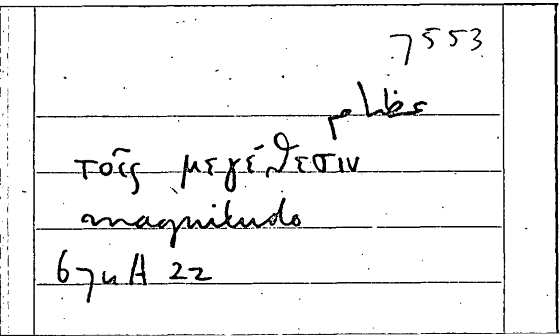 7553
عظام
τοῖς μεγέθεσιν
magnitudo
674 A 22